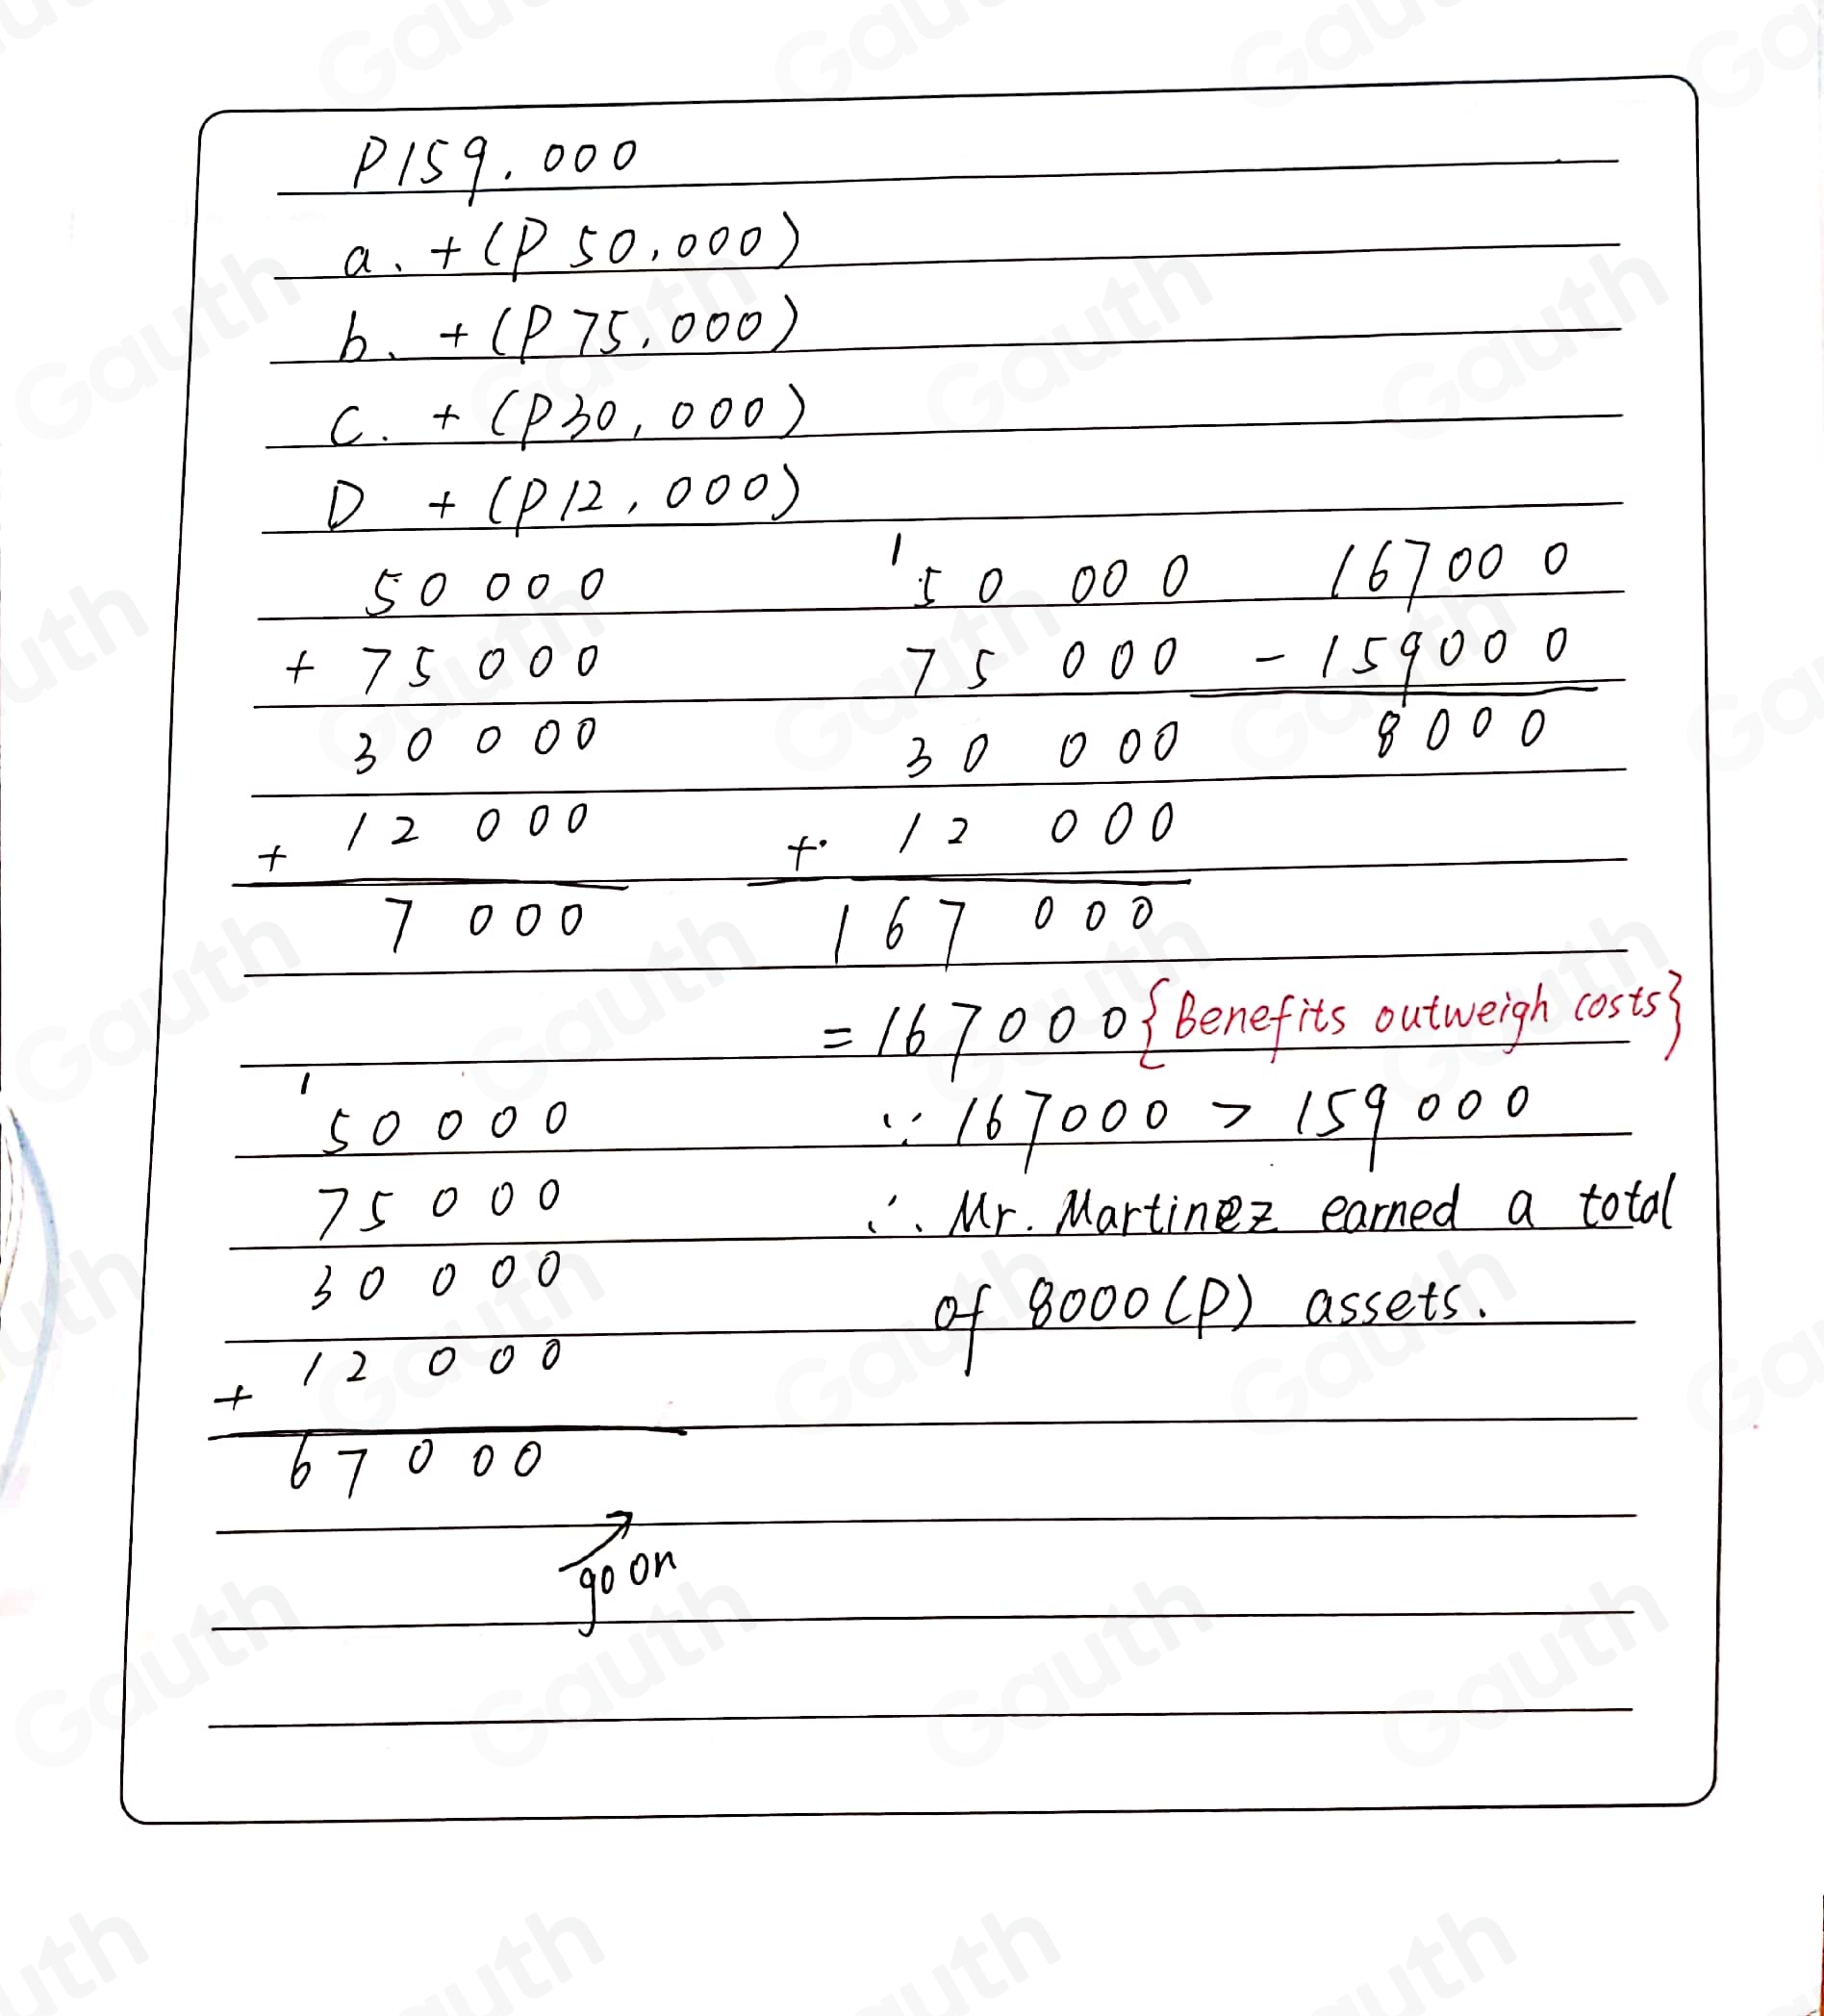 P159.000
a. +(P 50,000)
b. +(P 75,000)
c. +(P30,000)
D +(P12,000)
50 000
+ 75 000
30 000
+ 12 000
7 000
1
50 000
75 000
30 000
+ 12 000
167 000
167000
- 159000
8000
= 167000 {Benefits outweigh costs}
1
50 000
75 000
30 000
+ 12 000
67 000
go on
∵ 167000 > 159000
∴ Mr. Martinez earned a total
of 8000(P) assets.
Gauth